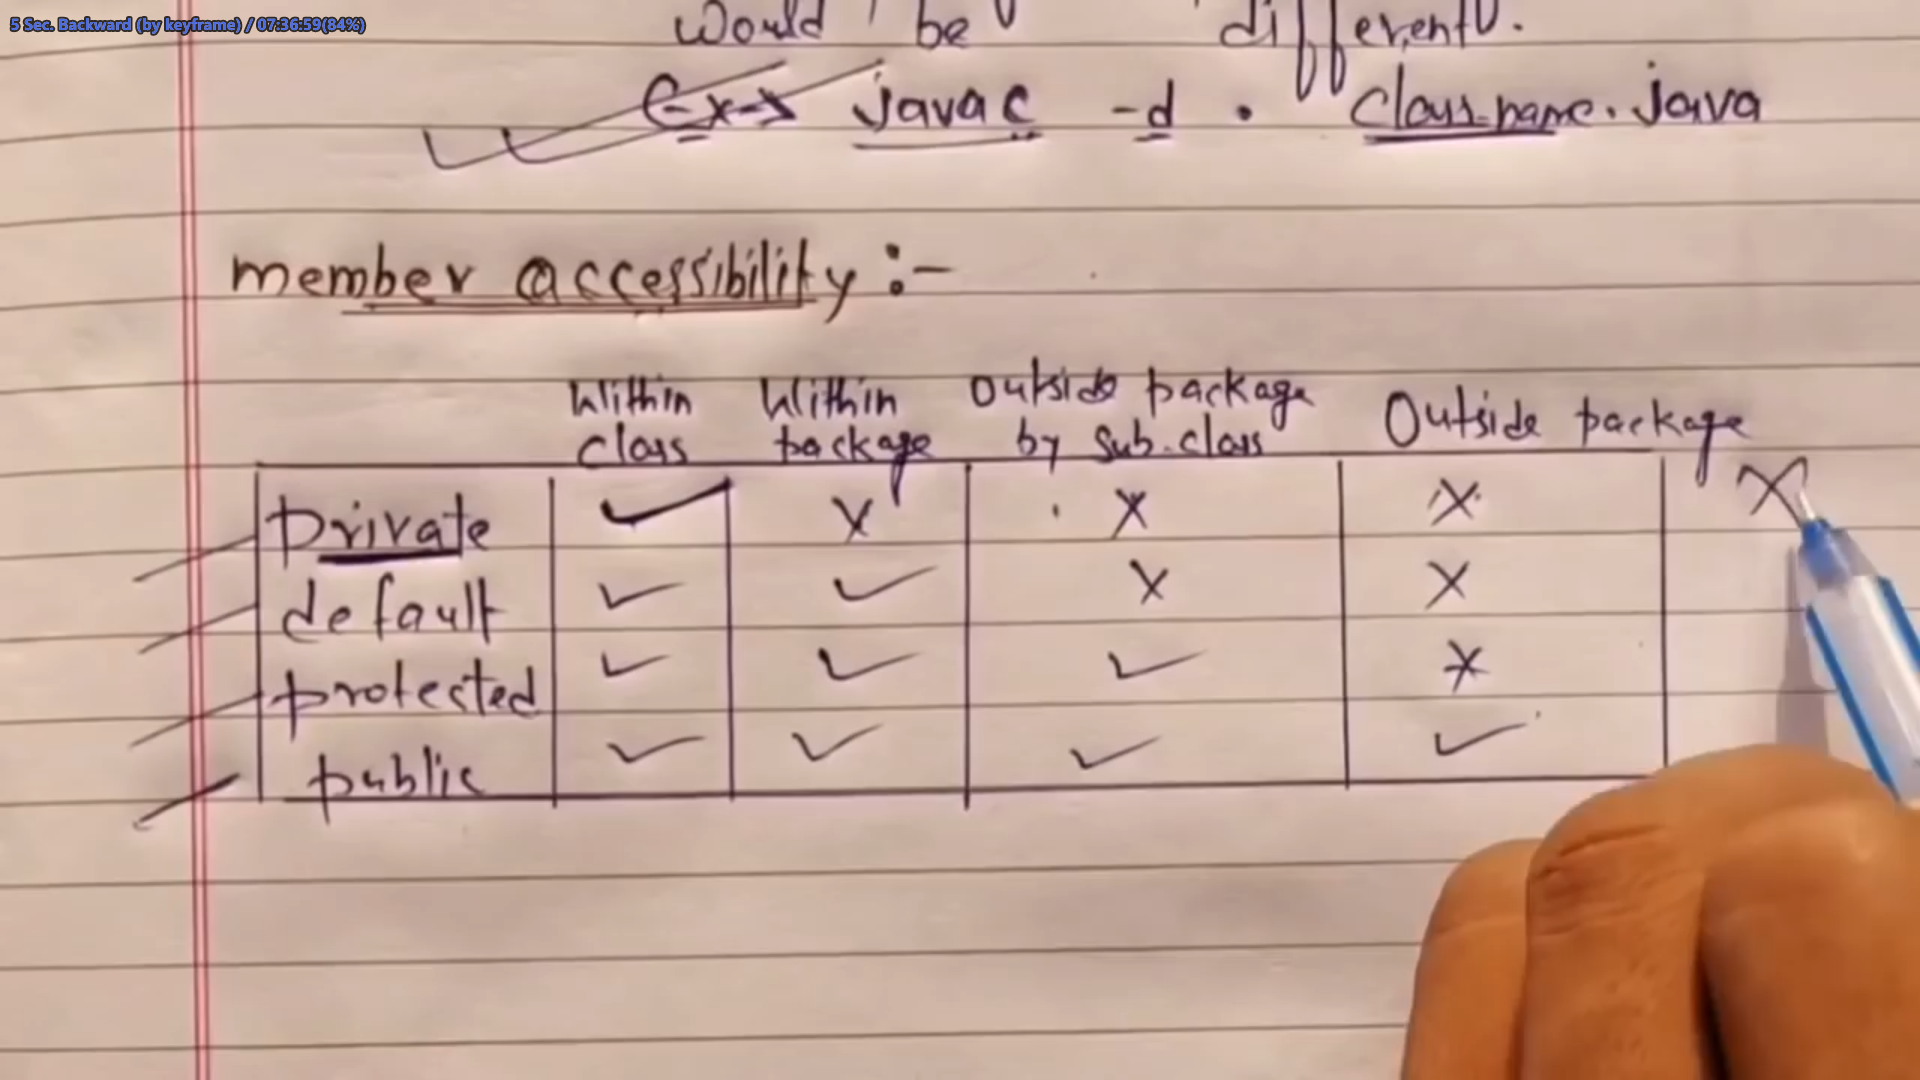 5 Sec. Backward (by keyframe) / 07:36:59(84%)
would be differently.
Ex→ javac -d . Class-name.java
member accessibility :-
Within class Within package Outside package by Sub-class Outside package
private ✓ X X X X
default ✓ ✓ X X
protected ✓ ✓ ✓ X
public ✓ ✓ ✓ ✓